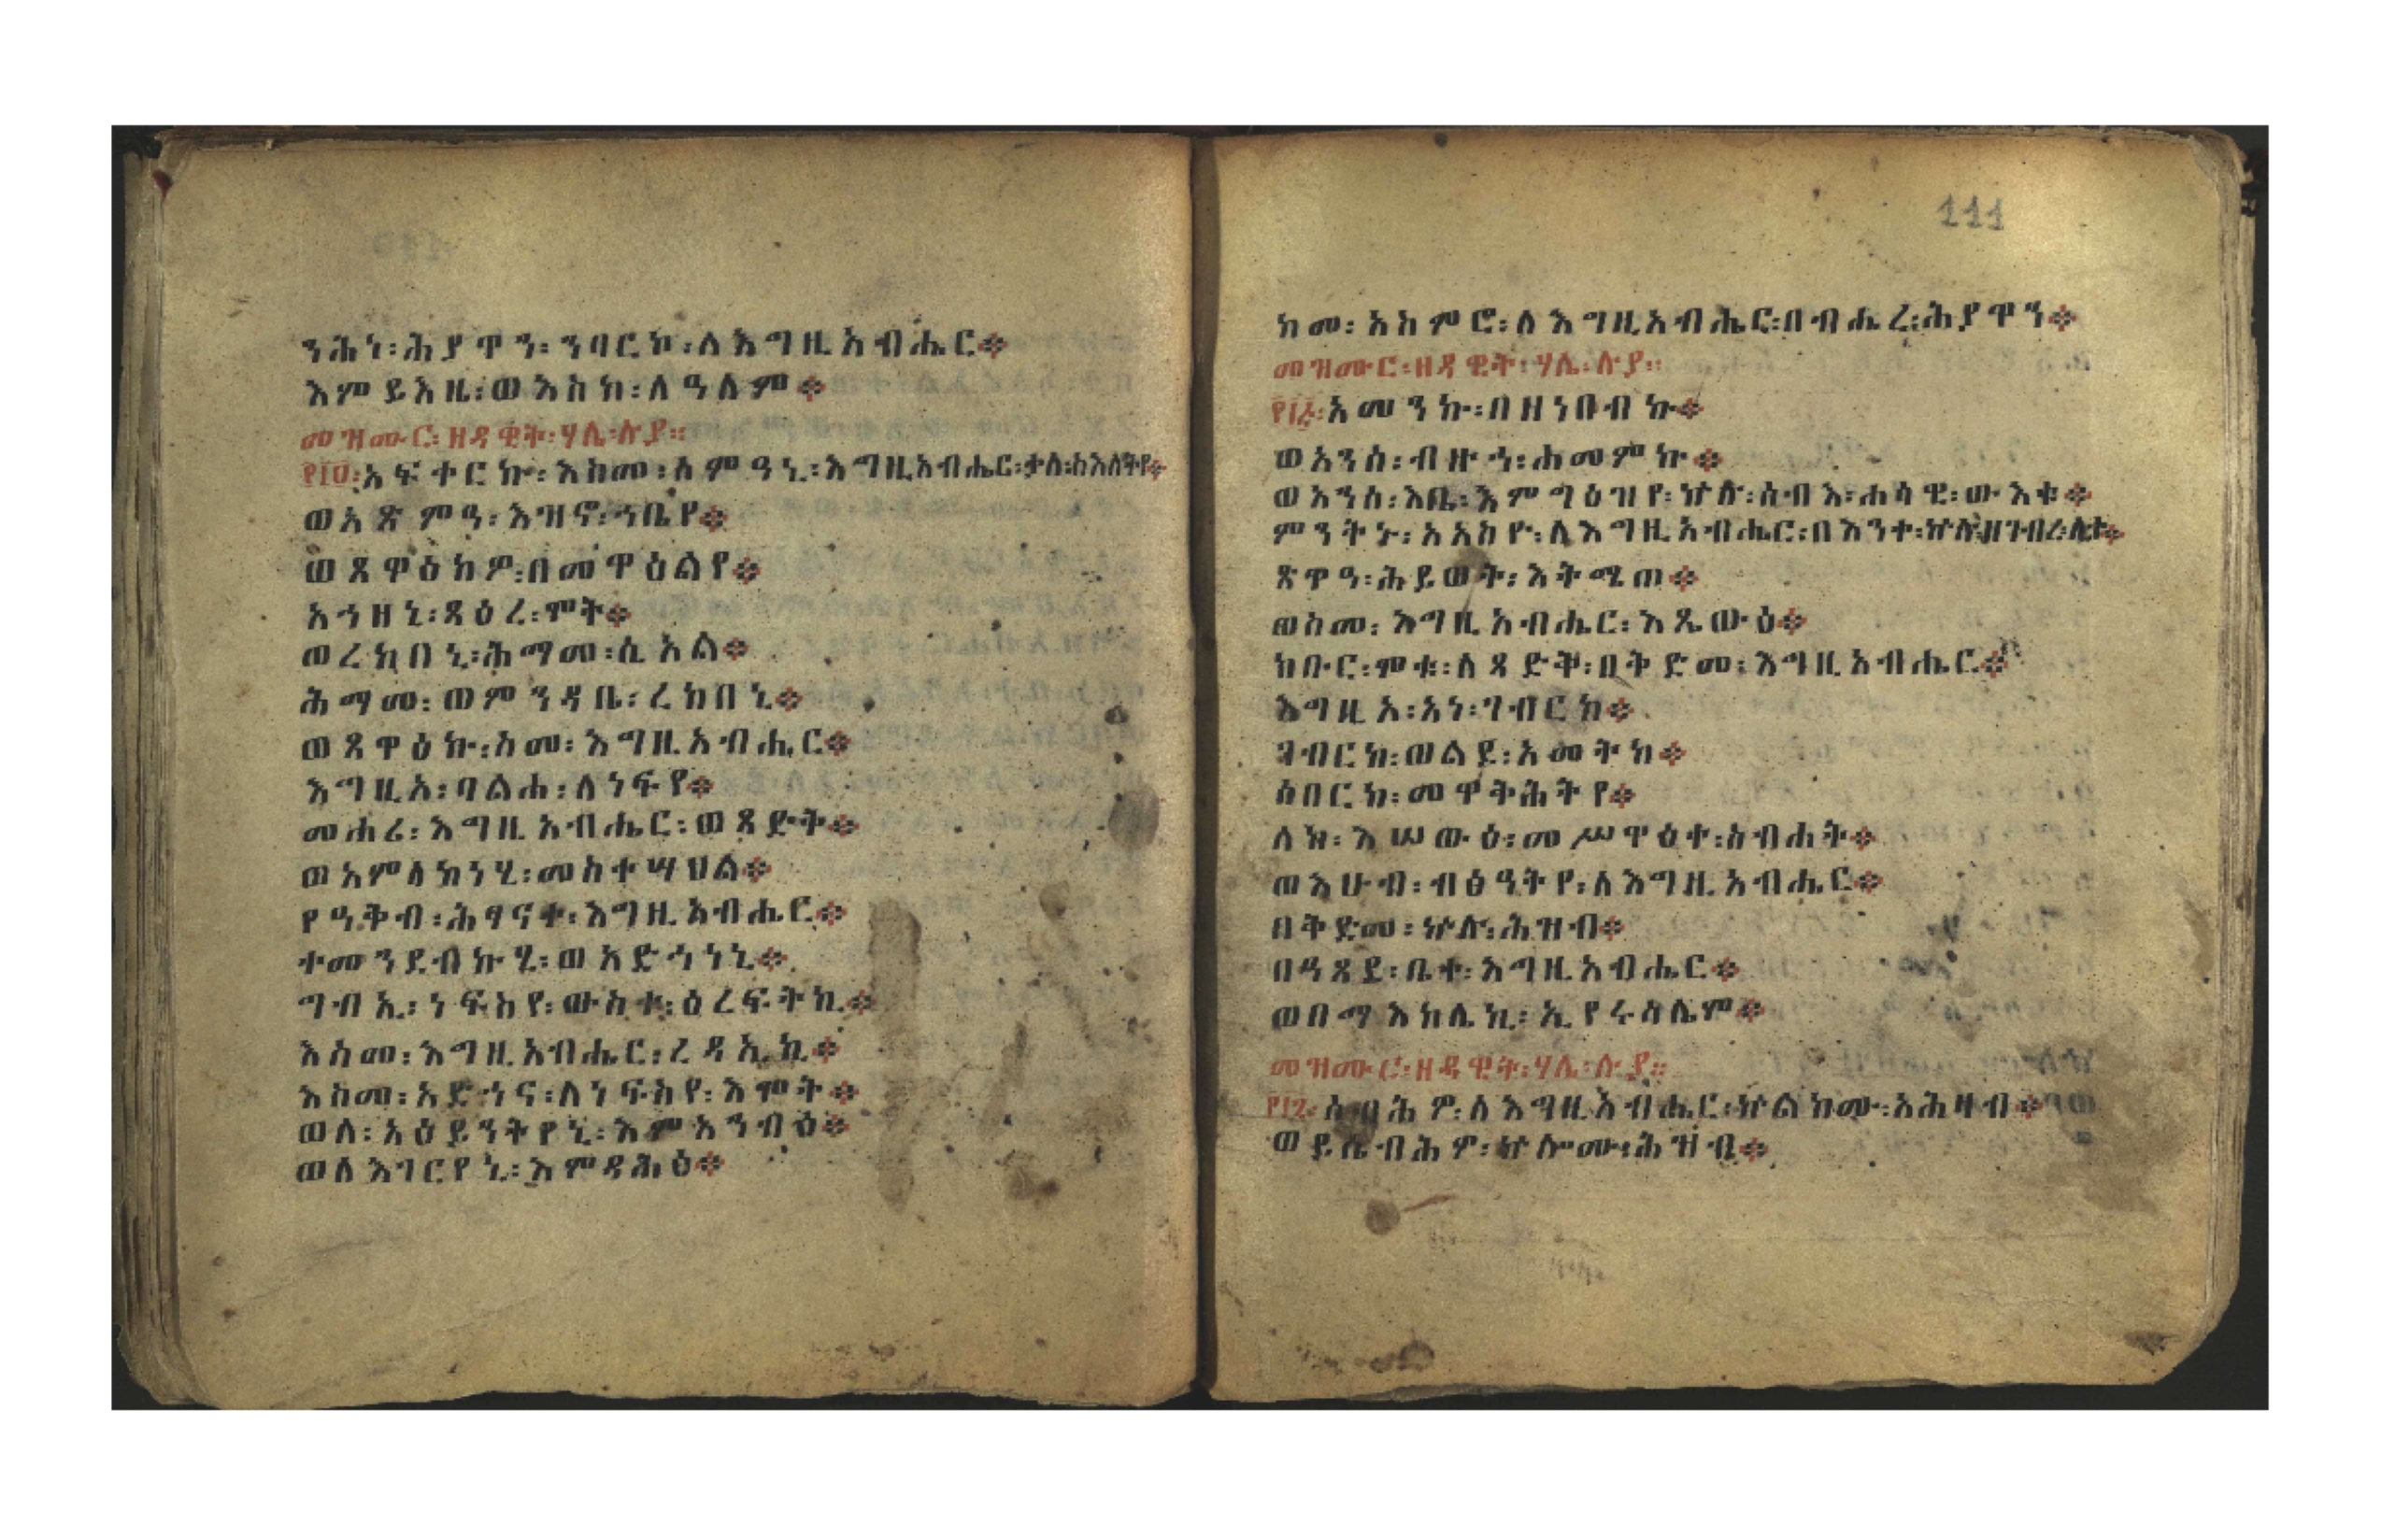 ንሕነ፡ሕያዋን፡ንባርኮ፡ለእግዚአብሔር፨
እምይእዜ፡ወእስከ፡ለዓለም፨
መዝሙር፡ዘዳዊት፡ሃሌ፡ሉያ።
አፍቀርኩ፡እስመ፡ለምዓኒ፡እግዚአብሔር፡ቃለ፡ስእለትየ፨
ወአጽምዓ፡እዝኖ፡ኀቤየ፨
ወጸዋዕክዎ፡በመዋዕልየ፨
አኀዘኒ፡ጻዕረ፡ሞት፨
ወረከበኒ፡ሕማመ፡ሲኦል፨
ሕማመ፡ወምንዳቤ፡ረከበኒ፨
ወጸዋዕኩ፡ስመ፡እግዚአብሔር፨
እግዚአ፡ባልሐ፡ለነፍየ፨
መሐሪ፡እግዚአብሔር፡ወጻድቅ፨
ወአምላክነሂ፡መስተሣህል፨
የዓቅብ፡ሕፃናተ፡እግዚአብሔር፨
ተመንደብኩሂ፡ወአድኀነኒ፨
ግብኢ፡ነፍስየ፡ውስተ፡ዕረፍትኪ፨
እስመ፡እግዚአብሔር፡ረዳኢኪ፨
እስመ፡አድኀና፡ለነፍስየ፡እሞት፨
ወለ፡አዕይንትየኒ፡እምአንብዕ፨
ወለእገርየኒ፡እምዳሕፅ፨
111
ከመ፡አስምሮ፡ለእግዚአብሔር፡በብሔረ፡ሕያዋን፨
መዝሙር፡ዘዳዊት፡ሃሌ፡ሉያ።
አመንኩ፡በዘነበብኩ፨
ወአንሰ፡ብዙኀ፡ሐመምኩ፨
ወአንሰ፡እቤ፡እምግዕዝየ፡ኵሉ፡ሰብእ፡ሐሳዊ፡ውእቱ፨
ምንትኑ፡አአስዮ፡ለእግዚአብሔር፡በእንተ፡ኵሉ፡ዘገብረ፡ሊተ፨
ጽዋዓ፡ሕይወት፡እትሜጠ፨
ወስመ፡እግዚአብሔር፡እጼውዕ፨
ክቡር፡ሞቱ፡ለጻድቅ፡በቅድመ፡እግዚአብሔር፨
እግዚኦ፡አነ፡ገብርከ፨
ገብርከ፡ወልደ፡አመትከ፨
ሰበርከ፡መዋቅሕትየ፨
ለከ፡እሠውዕ፡መሥዋዕተ፡ስብሐት፨
ወእሁብ፡ብፅዓትየ፡ለእግዚአብሔር፨
በቅድመ፡ኵሉ፡ሕዝብ፨
በዓጸደ፡ቤተ፡እግዚአብሔር፨
ወበማእከሌኪ፡ኢየሩሳሌም፨
መዝሙር፡ዘዳዊት፡ሃሌ፡ሉያ።
ሰብሕዎ፡ለእግዚአብሔር፡ኵልክሙ፡አሕዛብ፨
ወይሴብሕዎ፡ኵሎሙ፡ሕዝብ፨